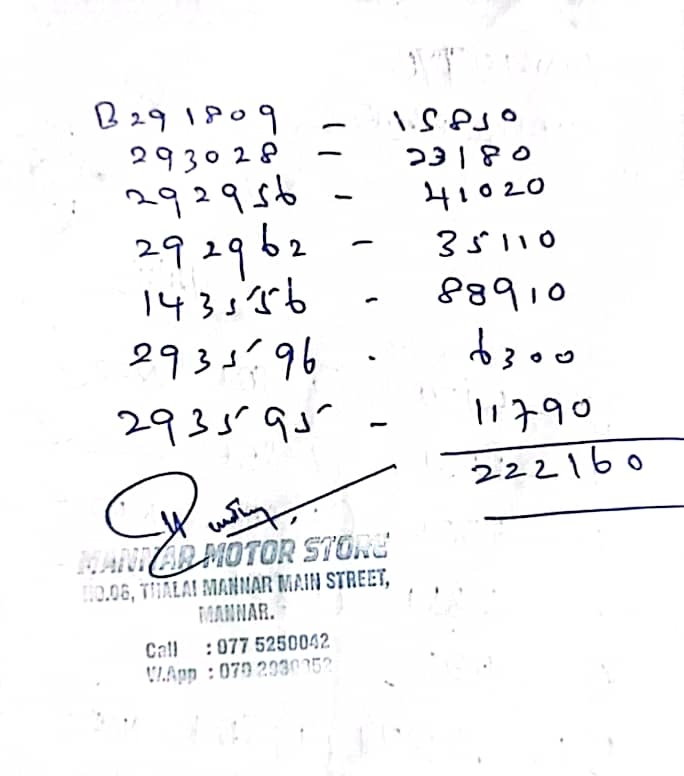 B 291809 - 15850
293028 - 23180
292956 - 41020
292962 - 35110
143556 - 88910
293596 - 6300
293595 - 11790
222160
MANNAR MOTOR STORE
NO.06, THALAI MANNAR MAIN STREET,
MANNAR.
Call : 077 5250042
W.App :